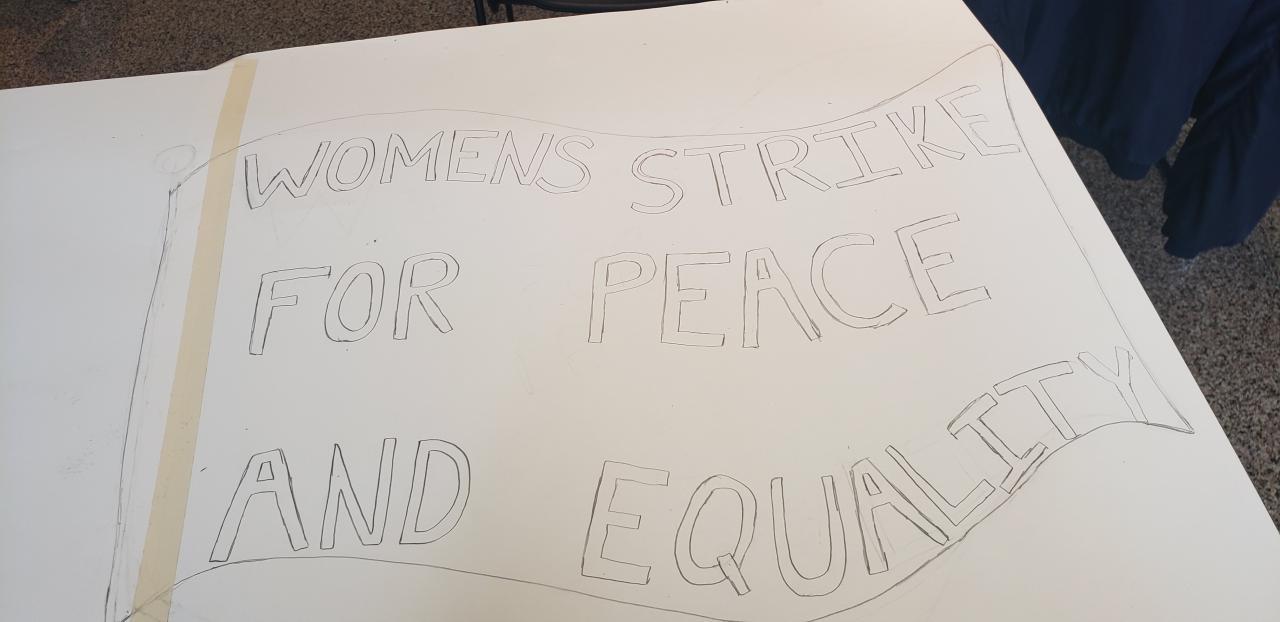 WOMENS STRIKE
FOR PEACE
AND EQUALITY